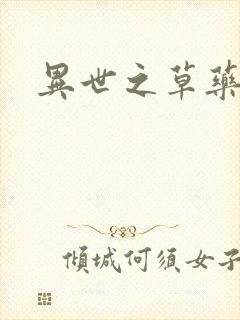 異世之草藥
傾城何須女子